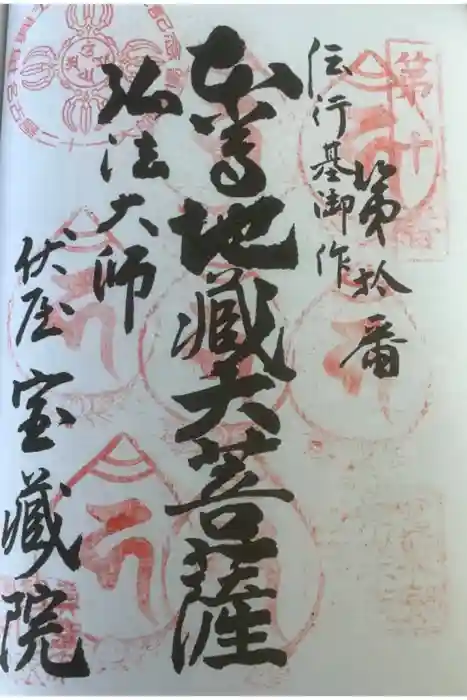 第十
第拾番
伝行基御作
本尊地蔵大菩薩
弘法大師
伏屋
宝蔵院